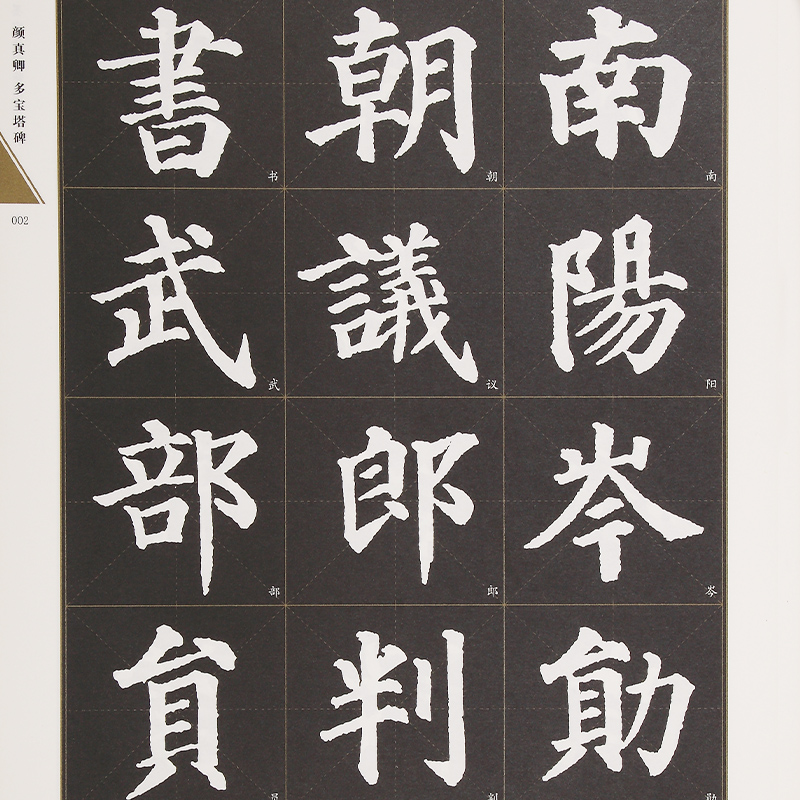 颜真卿 多宝塔碑
002
南陽岑勛
南
阳
岑
勋
朝議郎判
朝
议
郎
判
書武部貟
书
武
部
员